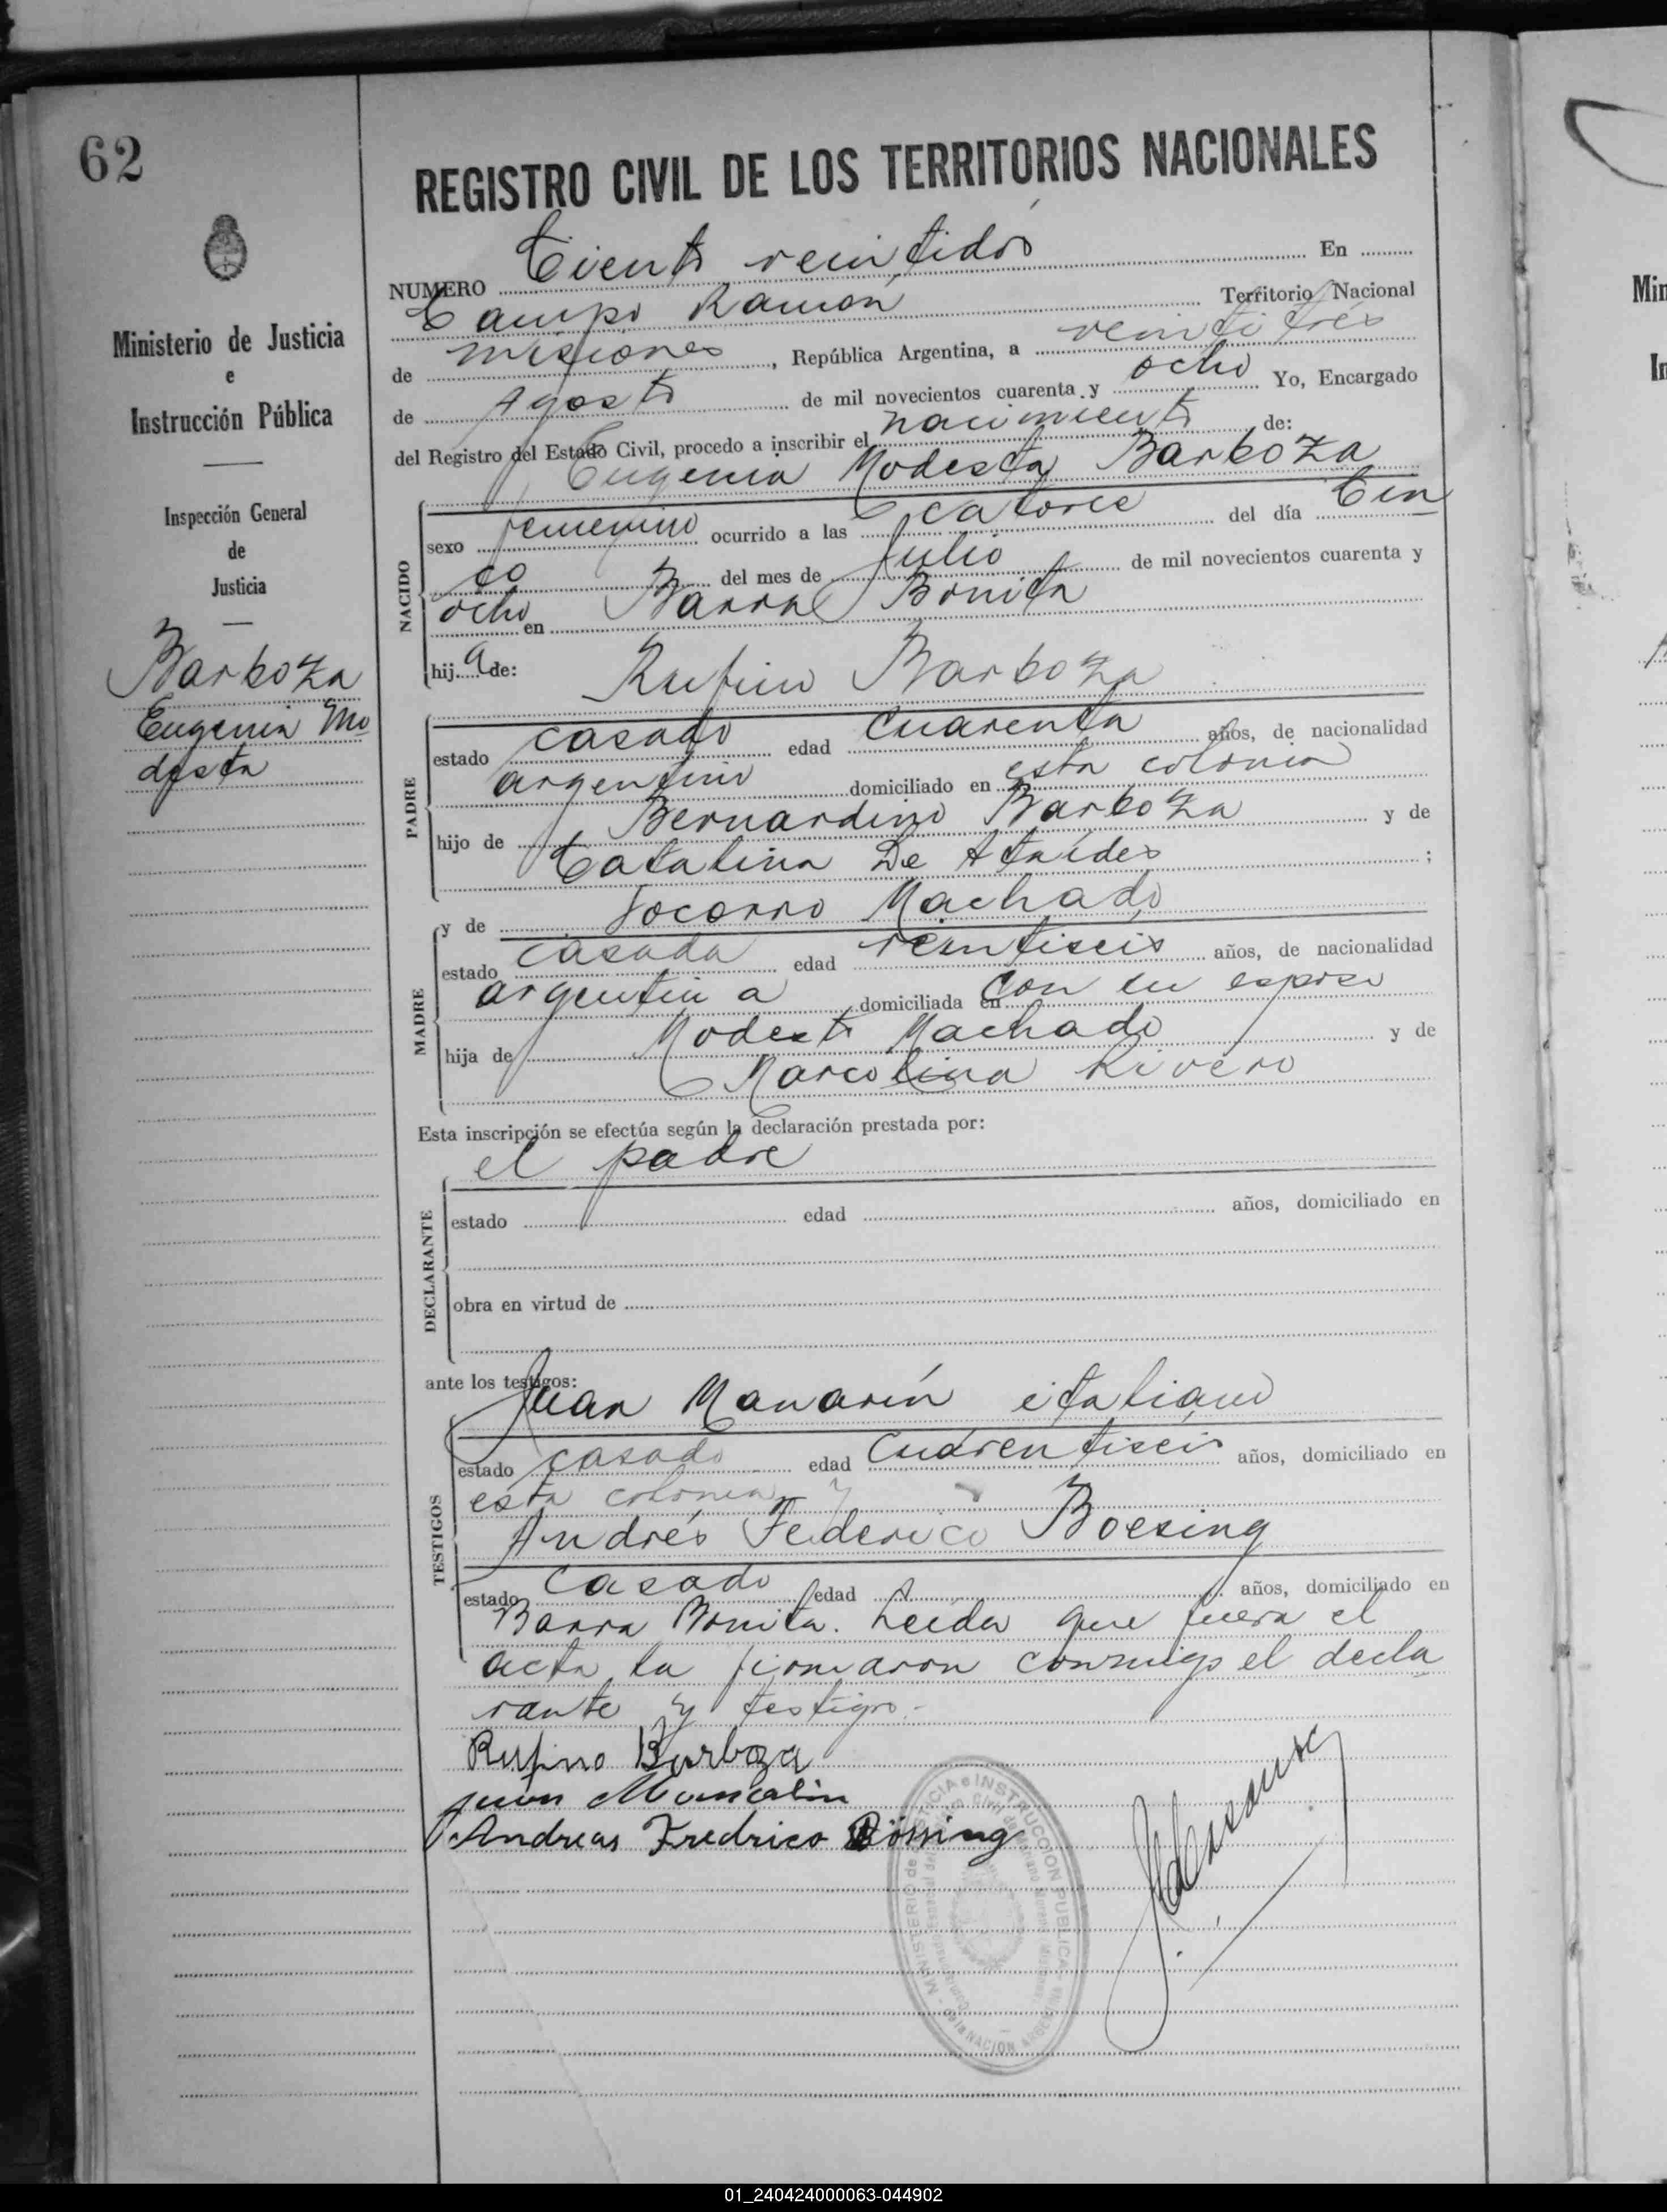 62
Ministerio de Justicia
e
Instrucción Pública
Inspección General
de
Justicia
Barboza
Eugenia Mo
desta
REGISTRO CIVIL DE LOS TERRITORIOS NACIONALES
NUMERO Ciento veintidós En
Campo Ramón Territorio Nacional
de Misiones, República Argentina, a veintitrés
de Agosto de mil novecientos cuarenta y ocho Yo, Encargado
del Registro del Estado Civil, procedo a inscribir el nacimiento de:
Eugenia Modesta Barboza
NACIDO
sexo femenino ocurrido a las catorce del día Cin
co del mes de Julio de mil novecientos cuarenta y
ocho en Barra Bonita
hija de: Rufino Barboza
PADRE
estado casado edad cuarenta años, de nacionalidad
argentino domiciliado en esta colonia
hijo de Bernardino Barboza y de
Catalina De Ataídes ;
y de Socorro Machado
MADRE
estado casada edad veintiseis años, de nacionalidad
argentina domiciliada en con su esposo
hija de Modesto Machado y de
Marcolina Rivero
Esta inscripción se efectúa según la declaración prestada por:
el padre
DECLARANTE
estado edad años, domiciliado en
obra en virtud de
ante los testigos:
Juan Manarín italiano
TESTIGOS
estado casado edad cuarentiseis años, domiciliado en
esta colonia y
Andrés Federico Boesing
estado casado edad años, domiciliado en
Barra Bonita. Leída que fuera el
acta, la firmaron conmigo el decla
rante y testigo.-
Rufino Barboza
Juan
Andreas Fredrico Bössing
MINISTERIO de JUSTICIA e INSTRUCCION PUBLICA
de la NACION ARGENTINA
01_240424000063-044902